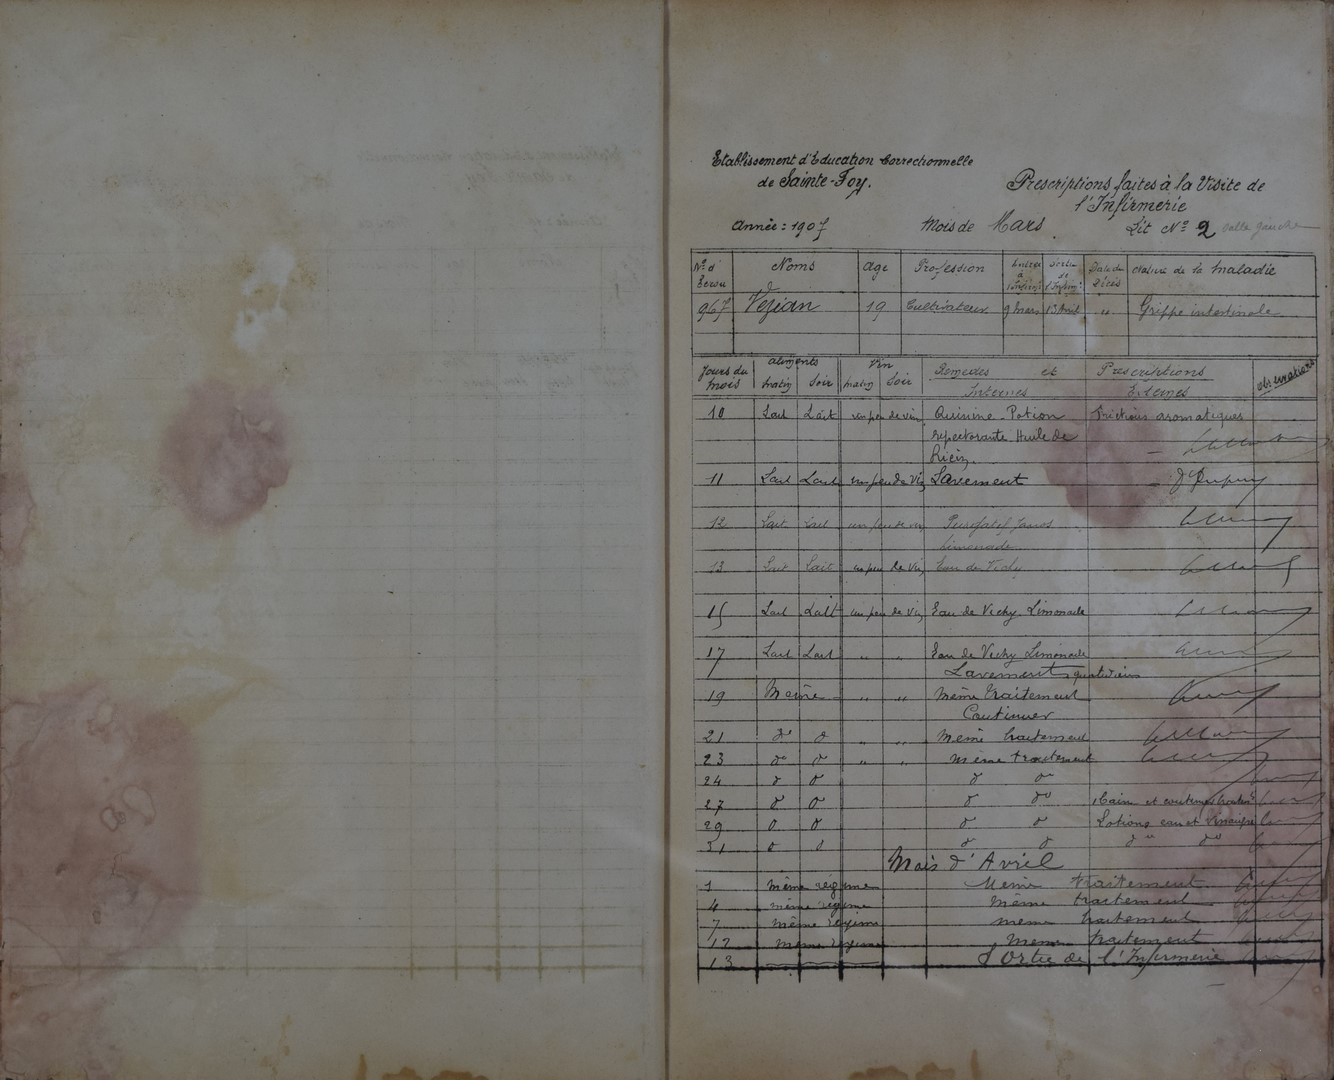 Etablissement d'Education Correctionnelle
de Sainte-Foy.
Prescriptions faites à la Visite de
l'Infirmerie
Année : 1907 Mois de Mars Lit Nº 2 salle gauche
Nº d' Ecrou Noms Age Profession Entrée à l'Infirm. Sortie de l'Infirm. Date du Décès Nature de la Maladie
967 Vezian 19 Cultivateur 9 Mars 13 Avril " Grippe intestinale
Jours du Mois Aliments Matin Soir Vin Matin Soir Remèdes et Prescriptions Internes Externes Observations
10 Lait Lait un peu de vin Quinine Potion Frictions aromatiques
expectorante Huile de
Ricin.
11 Lait Lait un peu de Vin Lavement Dr Dupuy
12 Lait Lait un peu de vin
Limonade
13 Lait Lait un peu de Vin Eau de Vichy
15 Lait Lait un peu de Vin Eau de Vichy Limonade
17 Lait Lait " " Eau de Vichy Limonade
Lavements quotidiens
19 Même " " Même traitement
Continuer
21 do do " " Même traitement
23 do do " " Même traitement
24 do do do do
27 do do do do Bain et
29 do do do do Lotions eau et Vinaigre
31 do do do do do do
Mois d'Avril
1 même régime Même traitement
4 même régime Même traitement
7 même régime même traitement
12 même régime Même traitement
13 Sortie de l'Infirmerie